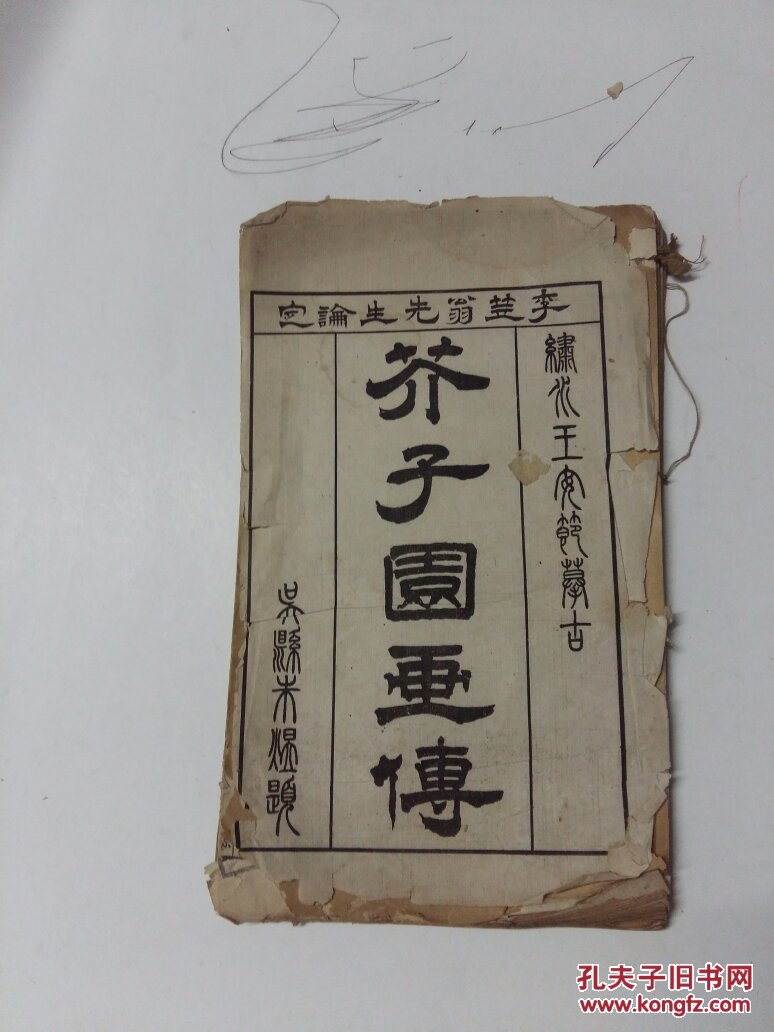 李笠翁先生論定
繡水王安節摹古
芥子園畫傳
吳縣朱煜題
孔夫子旧书网
www.kongfz.com